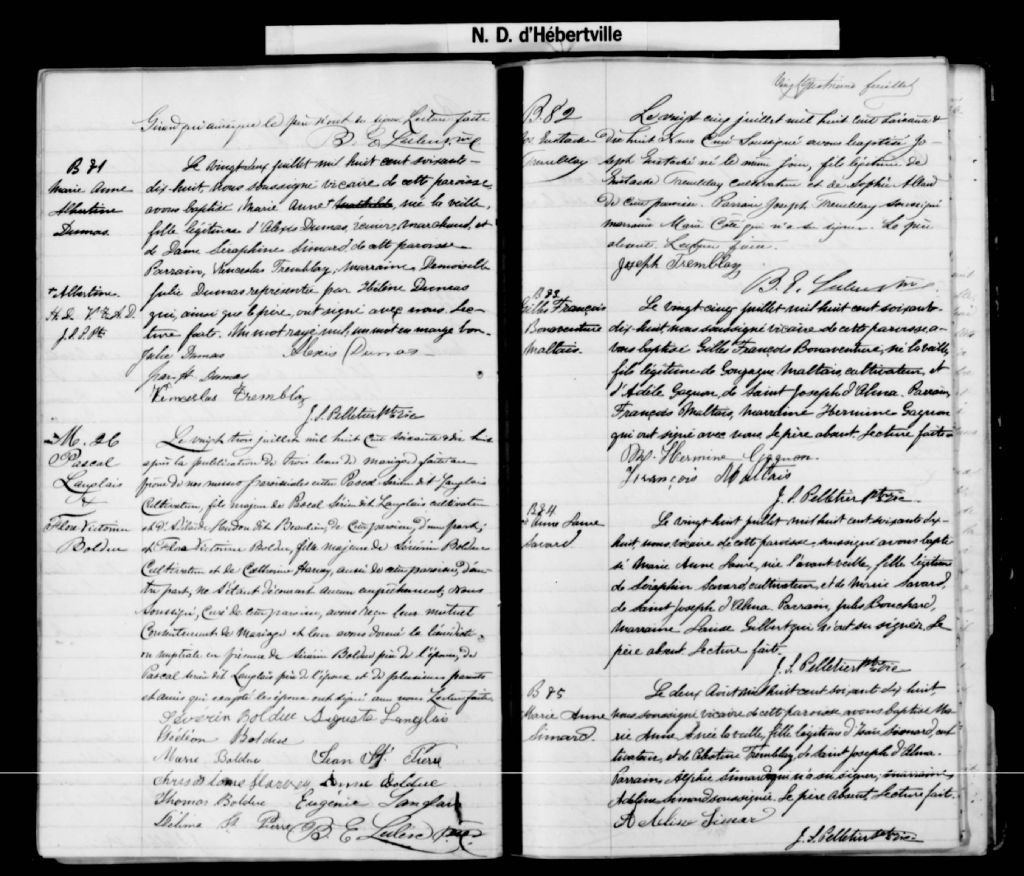 N. D. d'Hébertville
Girard qui ainsi que le père n'ont su signer. Lecture faite
B. E. Leclerc, Ptre
B 81
Marie Anne
Albertine
Dumas.
Le vingt-deux juillet mil huit cent soixante-
dix-huit, nous soussigné vicaire de cette paroisse,
avons baptisé Marie Anne + née la veille,
fille légitime d'Alexis Dumas, écuier, marchand, et
de Dame Seraphine Simard, de cette paroisse.
Parrain, Vinceslas Tremblay, marraine, Demoiselle
+ Albertine.
H. D. V. T. A. D.
J. S. P. Pt.
Julie Dumas représentée par Hélène Dumas
qui, ainsi que le père, ont signé avec nous. Lec-
ture faite. Un mot rayé nul, un mot en marge bon.
Julie Dumas Alexis Dumas
par H. Dumas
Vinceslas Tremblay
J. S. Pelletier Ptre Vic
M. 26
Pascal
Langlais
&
Flore Victorine
Bolduc
Le vingt trois juillet mil huit cent soixante & dix huit
après la publication de trois bans de mariage faite au
prône de nos messes paroissiales entre Pascal Sirien dit Langlais
Cultivateur, fils majeur de Pascal Sirien dit Langlais cultivateur
et d' Hudon dit Beaulieu, de cette paroisse, d'une part;
et Flore Victorine Bolduc, fille majeure de Sévérin Bolduc
Cultivateur et de Catherine Harvey, aussi de cette paroisse, d'au-
tre part, ne s'étant découvert aucun empêchement, Nous
Soussigné, Curé de cette paroisse, avons reçu leur mutuel
Consentement de Mariage et leur avons donné la bénédicti-
on nuptiale en présence de Sévérin Bolduc père de l'épouse, de
Pascal Sirien dit Langlais père de l'époux et de plusieurs parents
et amis qui excepté les époux ont signé avec nous. Lecture faite
Sévérin Bolduc Auguste Langlais
Gédéon Bolduc
Marie Bolduc Jean St. Pierre
Chrisostome Harvey Anne Bolduc
Thomas Bolduc Eugénie Langlais
Zélima St. Pierre B. E. Leclerc Ptre
Vingt quatrième feuillet
B. 82
Jos. Eustache
Tremblay
Le vingt cinq juillet mil huit cent soixante &
dix huit Nous Curé Soussigné avons baptisé Jo-
seph Eustache né le même jour, fils légitime de
Eustache Tremblay cultivateur et de Sophie Allard
de cette paroisse. Parrain Joseph Tremblay soussigné
marraine Marie Côté qui n'a su signer. Le père
absent. Lecture faite.
Joseph Tremblay
B. E. Leclerc Ptre
B 83
Gilles François
Bonaventure
Maltais.
Le vingt cinq juillet mil huit cent soixante-
dix-huit, nous soussigné vicaire de cette paroisse, a-
vons baptisé Gilles François Bonaventure, né la veille,
fils légitime de Gonzague Maltais, cultivateur, et
d'Adèle Gagnon, de Saint Joseph d'Alma. Parrain,
François Maltais, marraine Hermine Gagnon
qui ont signé avec nous. Le père absent. Lecture faite.
M. Hermine Gagnon.
François Maltais
J. S. Pelletier Ptre Vic
B 84
Anne Laure
Savard.
Le vingt huit juillet mil huit cent soixante dix-
huit, nous, vicaire de cette paroisse, soussigné avons bapti-
sé Marie Anne Laure, née l'avant veille, fille légitime
de Séraphin Savard, cultivateur, et de Marie Savard,
de Saint Joseph d'Alma. Parrain, Jules Bouchard,
marraine Louise Gilbert qui n'ont su signer. Le
père absent. Lecture faite.
J. S. Pelletier Ptre Vic
B 85
Marie Anne
Simard.
Le deux Août mil huit cent soixante dix huit,
nous soussigné vicaire de cette paroisse avons baptisé Ma-
rie Anne, née la veille, fille légitime d'Isaïe Simard, cul-
tivateur, et de Tremblay, de Saint Joseph d'Alma.
Parrain, Simard qui n'a su signer, marraine
Adeline Simard soussignée. Le père absent. Lecture faite.
Adeline Simar
J. S. Pelletier Ptre Vic